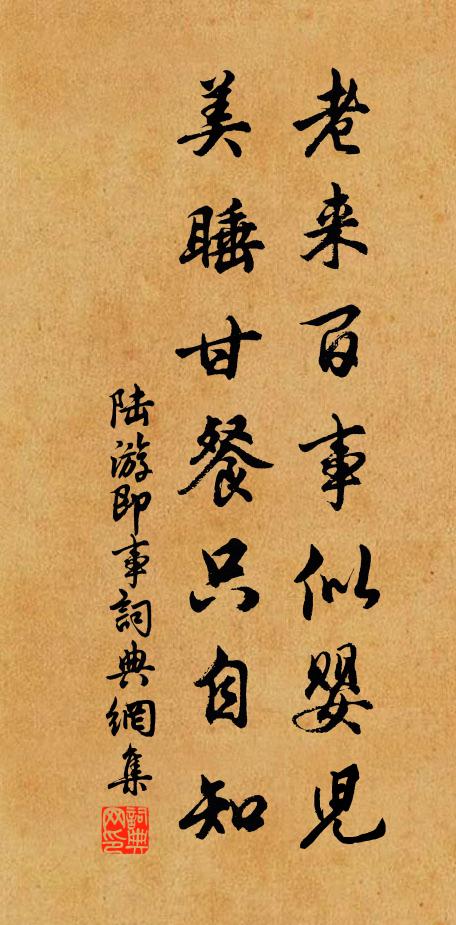 老来百事似婴児
美睡甘餐只自知
陆游即事詞典網集
詞典网印